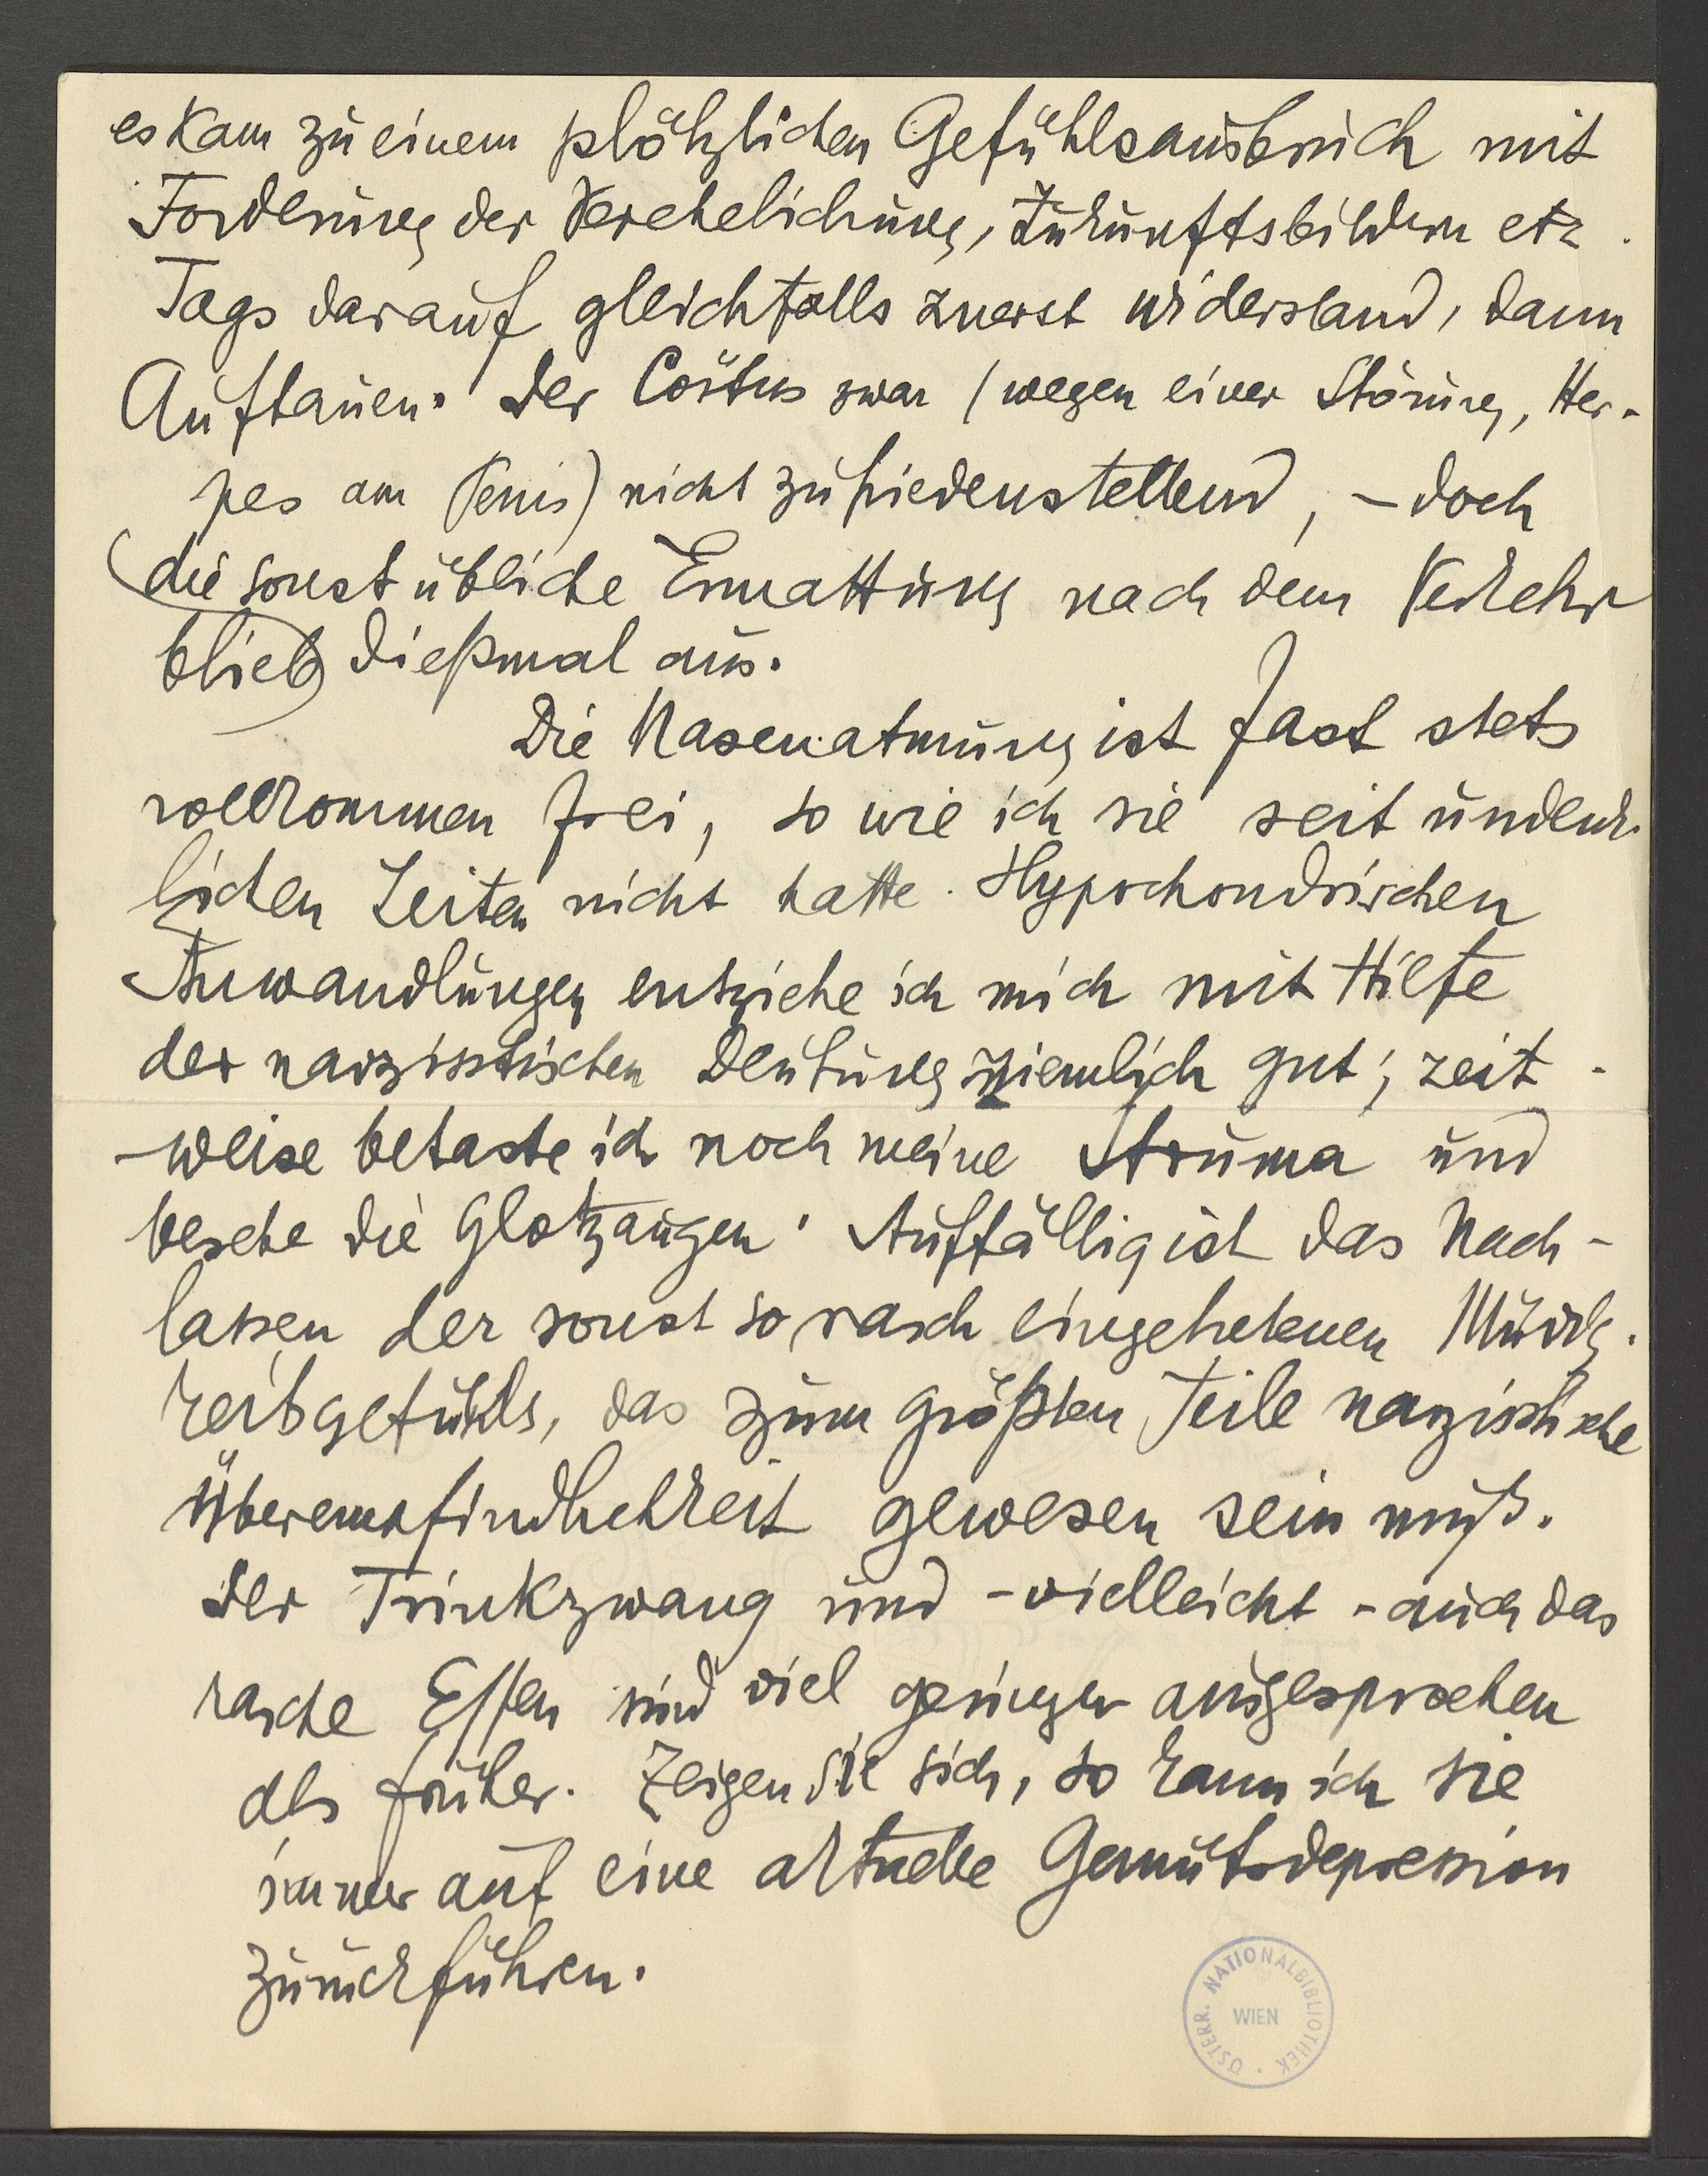 es kam zu einem plötzlichen Gefühlsausbruch mit
Forderung der Verehelichung, Zukunftsbildern etz.
Tags darauf gleichfalls zuerst Widerstand, dann
Auftauen. Der Coitus zwar (wegen einer Störung, Her-
pes am Penis) nicht zufriedenstellend, – doch
die sonst übliche Ermattung nach dem Verkehr
blieb dießmal aus.
Die Nasenatmung ist fast stets
vollkommen frei, so wie ich sie seit undenk-
lichen Zeiten nicht hatte. Hypochondrischen
Anwandlungen entziehe ich mich mit Hilfe
der narzisstischen Deutung ziemlich gut; zeit-
-weise betaste ich noch meine Struma und
besehe die Glotzaugen. Auffällig ist das Nach-
lassen der sonst so rasch eingetretenen Müdig-
keitsgefühls, das zum größten Teile narzistische
Überempfindlichkeit gewesen sein muß.
Der Trinkzwang und – vielleicht – auch das
rasche Essen sind viel geringer ausgesprochen
als früher. Zeigen sie sich, so kann ich sie
immer auf eine aktuelle Gemütsdepression
zurückführen.
ÖSTERR. NATIONALBIBLIOTHEK · WIEN